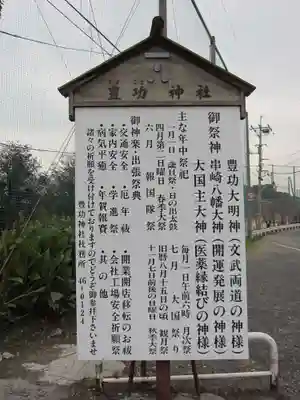 豊功神社
豊功大明神(文武両道の神様)
御祭神 串崎八幡大神(開運発展の神様)
大国主大神(医薬縁結びの神様)
主な年中祭祀
毎月一日午前六時 月次祭
一月一日 歳旦祭・日の出太鼓
七月 大国祭り
四月第二日曜日 春季大祭
旧暦八月十五日の頃 観月祭
六月 報国隊祭
十一月七日前後の日曜日 秋季大祭
御神楽・出張祭典
・交通安全
・厄年祓
・開業開店移転のお祓
・家内安全
・学進祭
・会社工場安全祈願祭
・病気平癒
・年賀報賽
・其の他
諸々の祈願を受け付けておりますのでどうぞ御参拝下さいませ
豊功神社社務所 46-0124